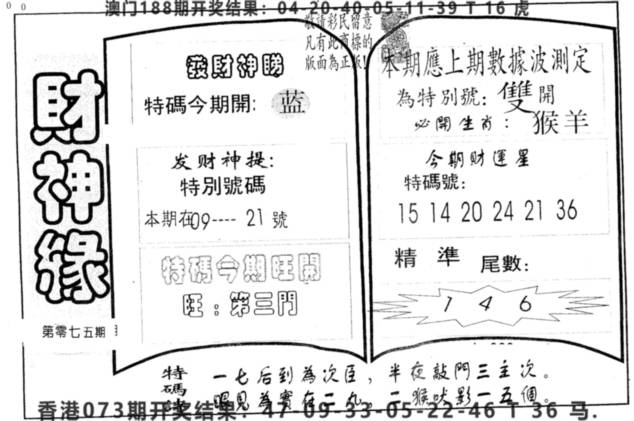 澳门188期开奖结果：04-20-40-05-11-39 T 16 虎
敬請彩民留意
凡有此商標的
版面為正版!
財神緣
第零七五期
發財神勝
特碼今期開: 蓝
发财神提:
特別號碼
本期在09---- 21號
特碼今期旺開
旺：第三門
本期應上期數據波測定
為特別號: 雙開
必開生肖: 猴羊
今期财運星
特碼號:
15 14 20 24 21 36
精準 尾數:
1 4 6
特碼
一七后到為次臣，半夜敲門三主次。
眼見為實在一九，一猴吠影一五個。
香港073期开奖结果：47-09-33-05-22-46 T 36 马.